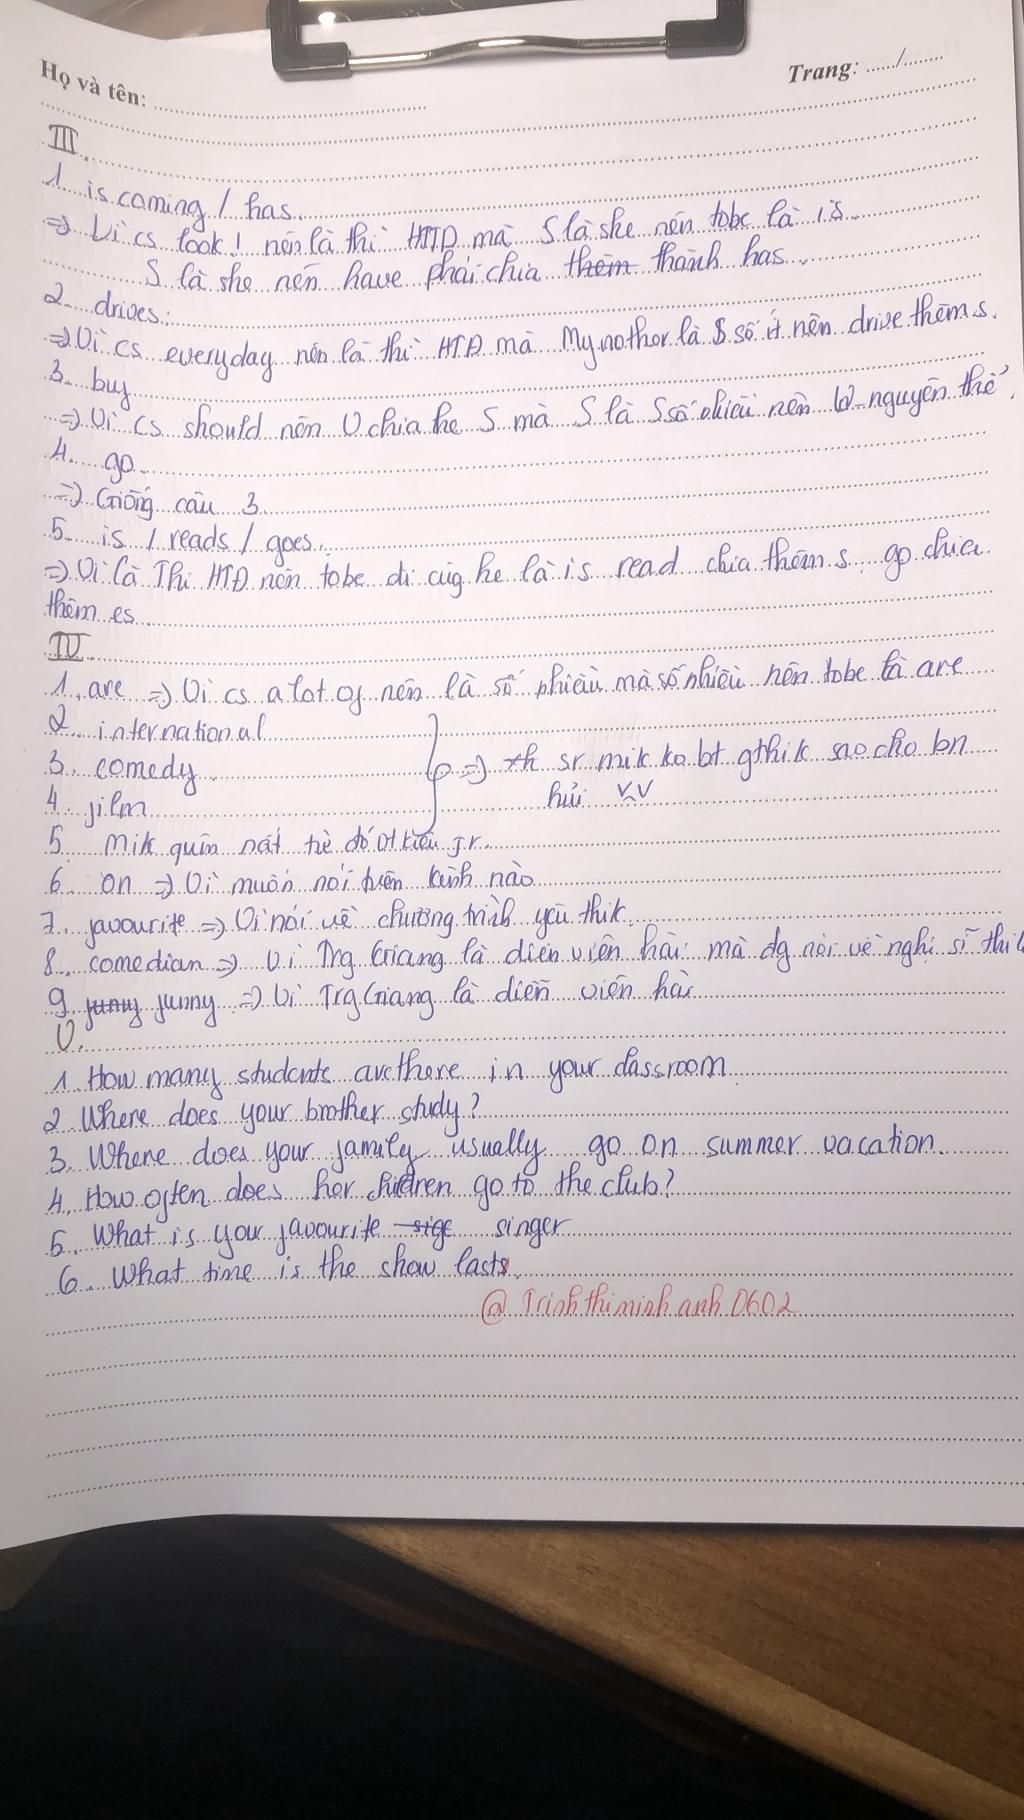 Họ và tên: ..............................
Trang: ....../........
III
1. is coming / has
=> Vì cs look! nên là thì HTTD mà S là she nên tobe là is
S là she nên have phải chia thêm thành has
2. drives
=> Vì cs everyday nên là thì HTĐ mà My mother là S số ít nên drive thêm s.
3. buy
=> Vì cs should nên V chia he S mà S là S số nhiều nên V nguyên thể.
4. go
=> Giống câu 3
5. is / reads / goes
=> Vì là Thì HTĐ nên tobe đi cùg he là is read chia thêm s go chia
thêm es
IV
1. are => Vì cs a lot of nên là số nhiều mà số nhiều nên tobe là are
2. international
3. comedy
=> sr mik ko bt gthik sao cho bn
4. film
hỉu V.V
5. mik quên nát từ đó ời kiểu j r.
6. on => Vì muốn nói trên kênh nào
7. favourite => Vì nói về chương trình yêu thik
8. comedian => Vì Trg Giang là diễn viên hài mà đg nói về nghị sĩ thì
9. funny funny => Vì Trg Giang là diễn viên hài
V.
1. How many students are there in your classroom
2. Where does your brother study?
3. Where does your family usually go on summer vacation.
4. How often does her children go to the club?
5. What is your favourite sige singer
6. What time is the show lasts.
@ Trinhthiminhanh0602